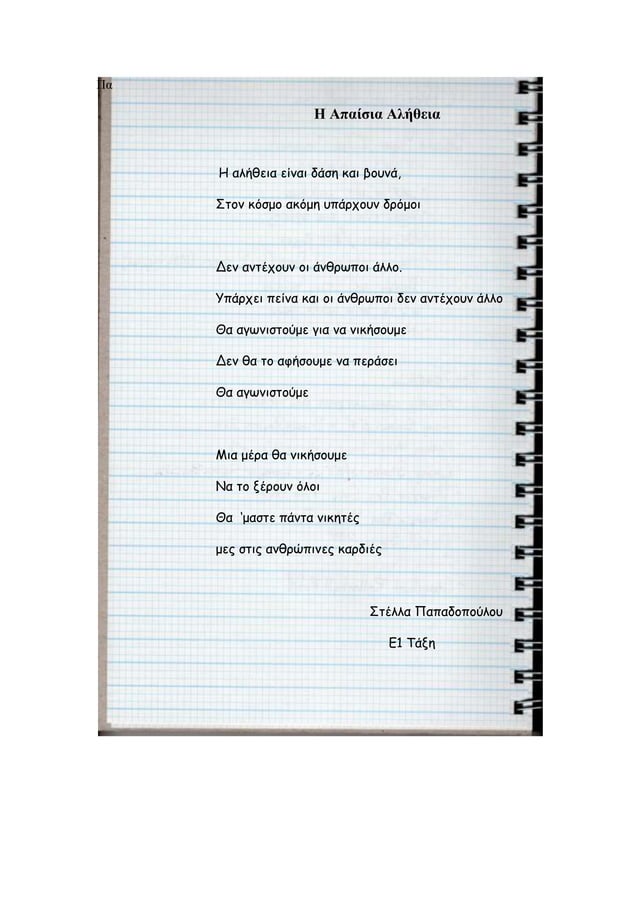 Πα
Η Απαίσια Αλήθεια
Η αλήθεια είναι δάση και βουνά,
Στον κόσμο ακόμη υπάρχουν δρόμοι
Δεν αντέχουν οι άνθρωποι άλλο.
Υπάρχει πείνα και οι άνθρωποι δεν αντέχουν άλλο
Θα αγωνιστούμε για να νικήσουμε
Δεν θα το αφήσουμε να περάσει
Θα αγωνιστούμε
Μια μέρα θα νικήσουμε
Να το ξέρουν όλοι
Θα 'μαστε πάντα νικητές
μες στις ανθρώπινες καρδιές
Στέλλα Παπαδοπούλου
Ε1 Τάξη